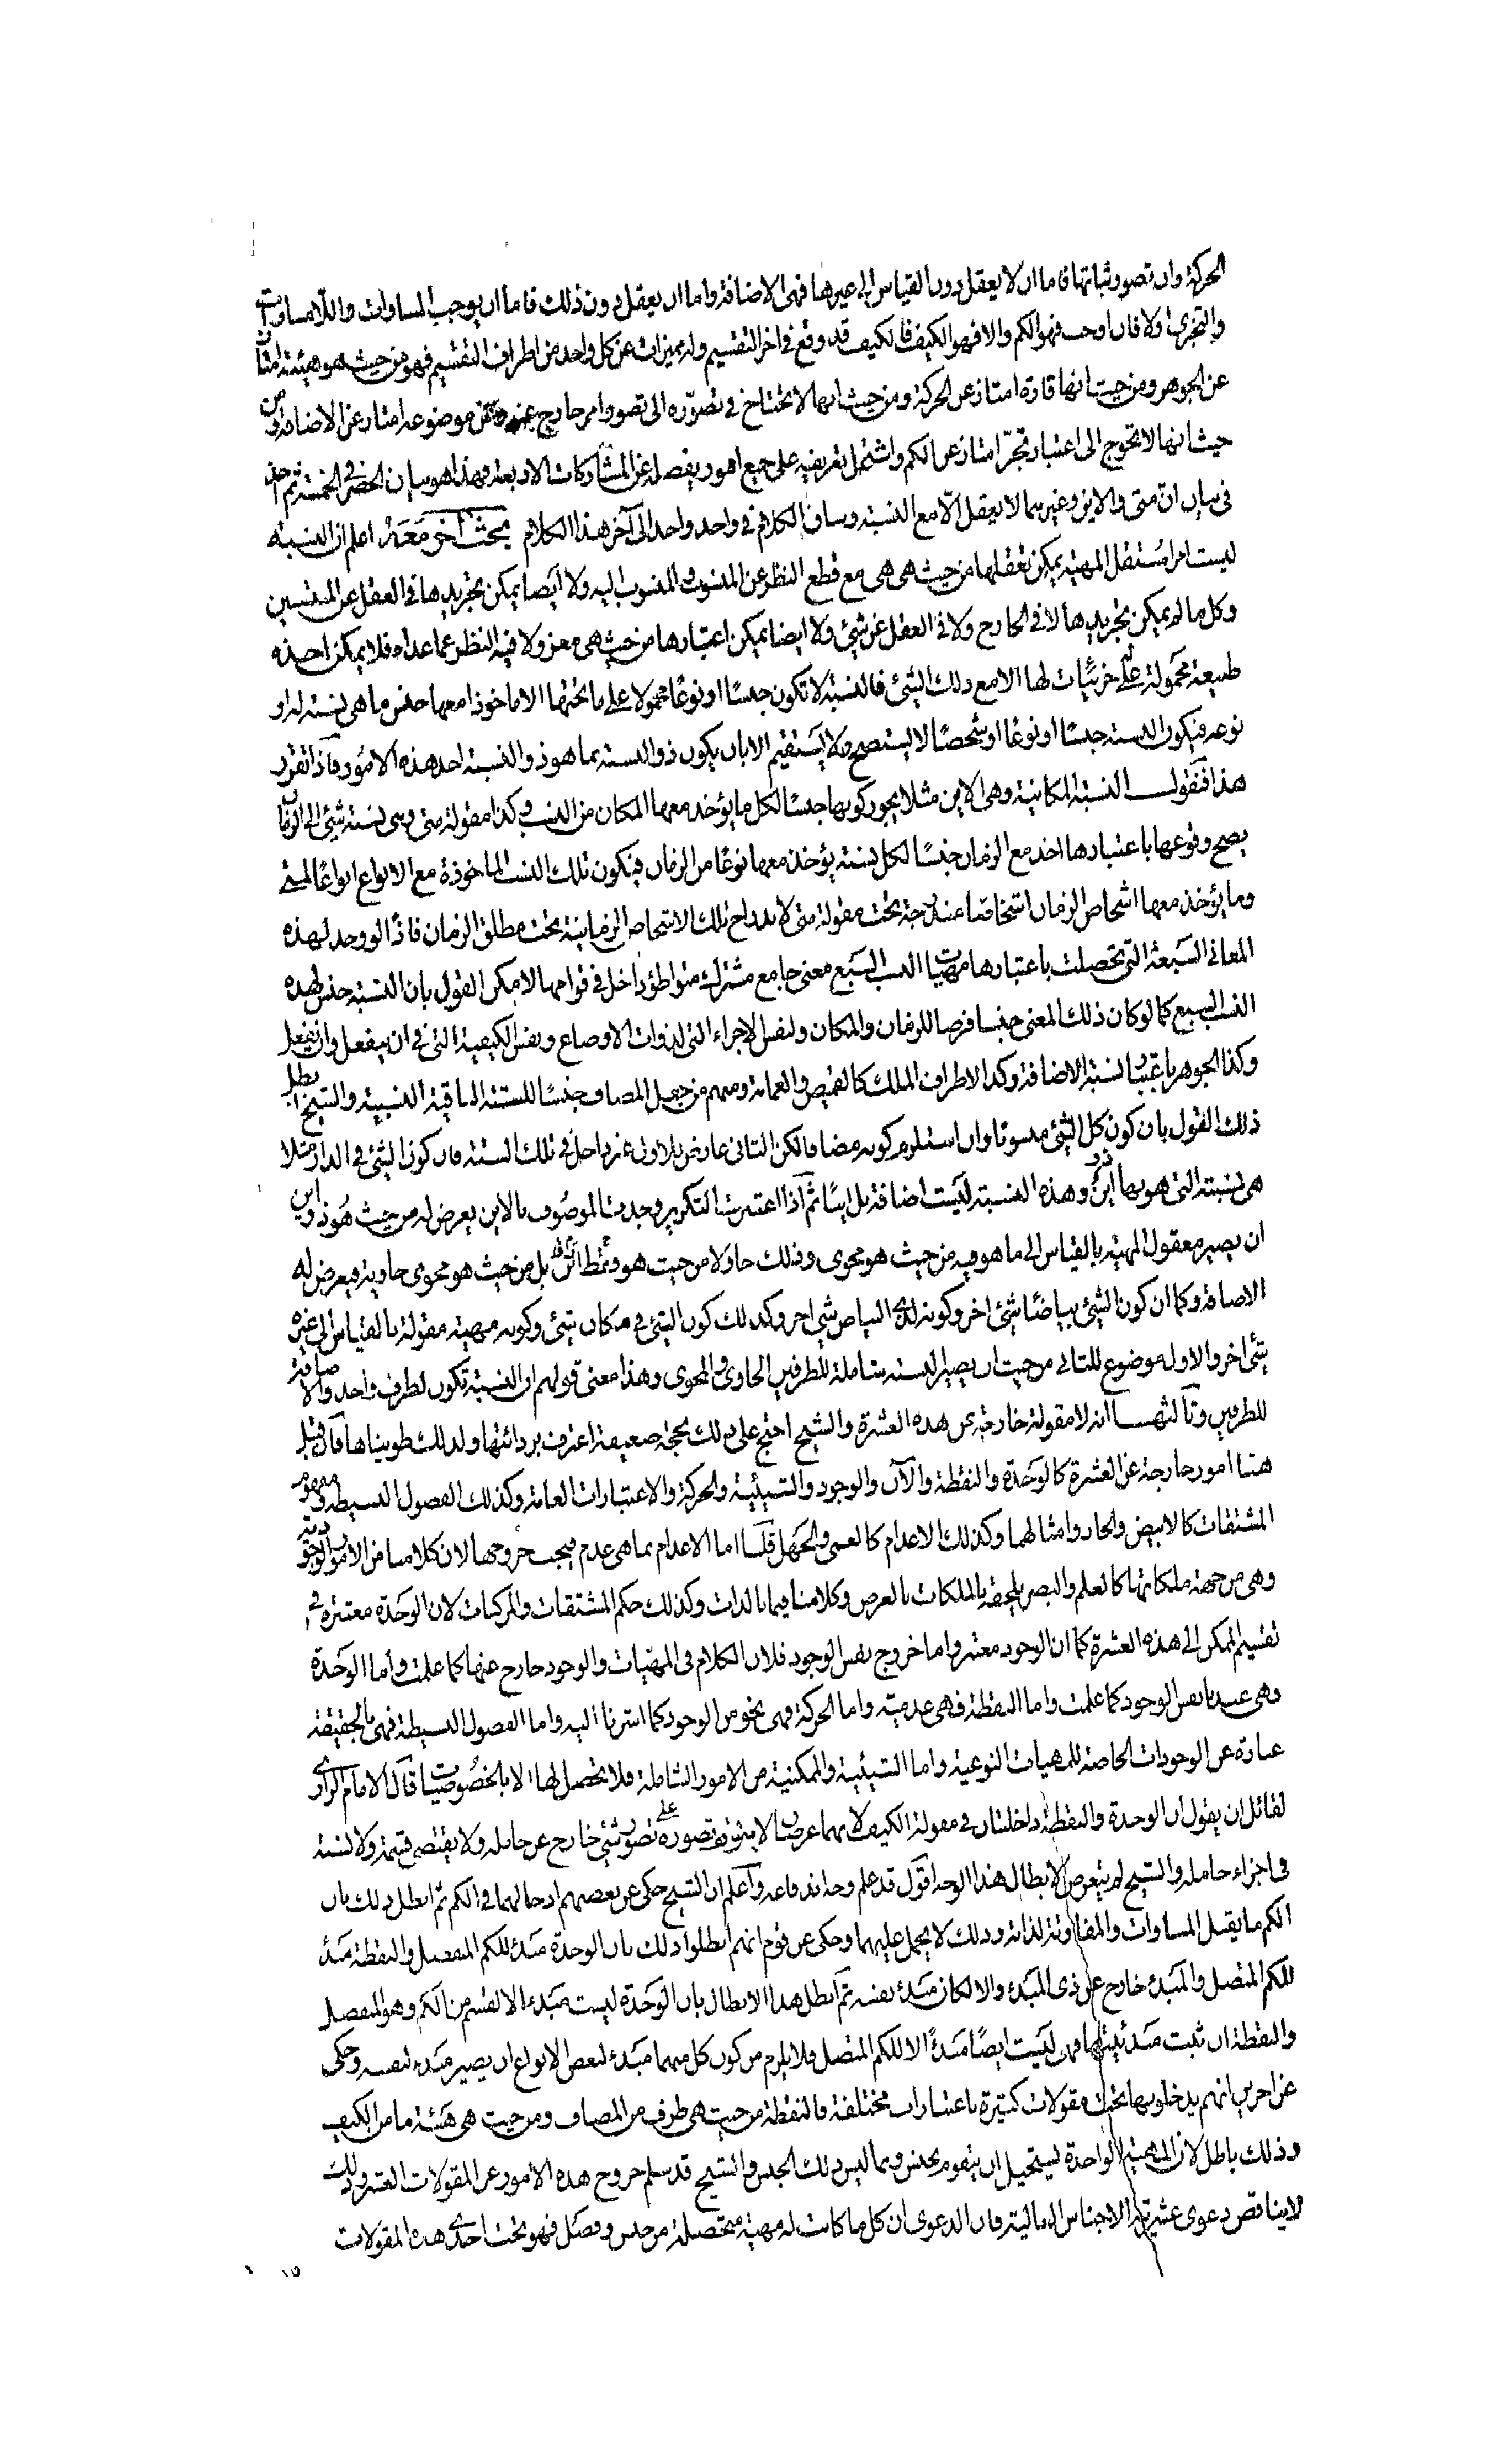 الحركة وان تصور ثباتها فاما ان لا يعقل دون القياس الى غيرها فهى الاضافة واما ان يعقل بدون ذلك فاما ان يوجب المساوات واللامساوات
والتجزى اولا فان اوجب فهو الكم والا فهو الكيف فالكيف قد وقع فى اخر التقسيم وله مميزات عن كل واحد من اطراف التقسيم فهو من حيث هو هيئة امتاز
عن الجوهر ومن حيث انها قارة امتاز عن الحركة ومن حيث انها لا يحتاج فى تصوره الى تصور امر خارج عنه وعن موضوعه امتاز عن الاضافة ومن
حيث انها لا تحوج الى اعتبار تجز امتاز عن الكم واشتمل تعريفه على جميع امور يفصله عن المشاركات الاربعة فهذا هو بيان الحصر فى الخمسة ثم اخذ
فى بيان ان متى والاين وغيرهما لا يعقل الا مع النسبة وساق الكلام فى واحد واحد الى آخر هذا الكلام بحث آخر معه اعلم ان النسبة
ليست امرا مستقل المهية يمكن تعقلها من حيث هى هى مع قطع النظر عن المنسوب والمنسوب اليه ولا ايضا يمكن تجريدها فى العقل عن المنتسبين
وكل ما لم يمكن تجريدها لا فى الخارج ولا فى العقل عن شئ ولا ايضا يمكن اعتبارها من حيث هى معزولا فيه النظر عما عداه فلا يمكن اخذه
طبيعة محمولة على جزئيات لها الا مع ذلك الشئ فالنسبة لا تكون جنسا او نوعا محمولا على ما تحتها الا ماخوذا معها جنس ما هى نسبة له او
نوعه فيكون النسبة جنسا او نوعا او شخصا لا يستصح ولا يستقيم الا بان يكون ذو النسبة بما هو ذو النسبة احد هذه الامور فاذا تقرر
هذا فنقول النسبة المكانية وهى الاين مثلا يجوز كونها جنسا لكل ما يؤخذ معها المكان من النسب وكذا مقولة متى وهى نسبة شئ الى الزمان
يصح وقوعها باعتبارها اخذ مع الزمان جنسا لكل نسبة يؤخذ معها نوعا من الزمان فيكون تلك النسب الماخوذة مع الانواع انواعا لمتى
وما يؤخذ معها اشخاص الزمان اشخاصا مندرجة تحت مقولة متى لاندراج تلك الاشخاص الزمانية تحت مطلق الزمان فاذا لو وجد لهذه
المعانى السبعة التى تحصلت باعتبارها مهيات النسب السبع معنى جامع مشترك متواطؤ داخل فى قوامها لامكن القول بان النسبة جنس لهذه
النسب السبع كما لو كان ذلك المعنى جنسا فرضا للزمان والمكان ولنفس الاجزاء التى لذوات الاوضاع ونفس الكيفية التى فى ان يفعل وان ينفعل
وكذا الجوهر باعتبار نسبة الاضافة وكذا الاطراف الملك كالقميص والعمامة ومنهم من جعل المضاف جنسا للستة الباقية النسبية والشيخ ابطل
ذلك القول بان كون كل الشئ منسوبا وان استلزم كونه مضافا لكن الثانى عارض للاول غير داخل فى تلك الستة فان كون الشئ فى الدار مثلا
هى نسبته التى هو بها اين وهذه النسبة ليست اضافة بل اينا ثم اذا اعتبرت التكرير وجدت الموصوف بالاين يعرض له من حيث هو ذو اين
ان يصير معقول المهية بالقياس الى ما هو فيه من حيث هو محوى وذلك حاو لا من حيث هو اين فقط بل من حيث هو محوى حاويه فيعرض له
الاضافة وكما ان كون الشئ بياضا شئ اخر وكونه لذى البياض شئ اخر وكذلك كون الشئ فى مكان شئ وكونه مهية مقولة بالقياس الى غيره
شئ اخر والاول موضوع للثانى من حيث ان يصير النسبة شاملة للطرفين الحاوى والمحوى وهذا معنى قولهم ان النسبة تكون لطرف واحد والاضافة
للطرفين وثالثها انه لا مقولة خارجة عن هذه العشرة والشيخ احتج على ذلك بحجة ضعيفة اعترف بردائتها ولذلك طويناها فان قيل
هنا امور خارجة عن العشرة كالوحدة والنقطة والآن والوجود والشيئية والحركة والاعتبارات العامة وكذلك الفصول البسيطة ومفهوم
المشتقات كالابيض والحار وامثالهما وكذلك الاعدام كالعمى والجهل قلنا اما الاعدام بما هى عدم فيجب خروجها لان كلامنا فى الامور الوجودية
وهى من جهة ملكاتها كالعلم والبصر يلحقه بالملكات بالعرض وكلامنا فيما بالذات وكذلك حكم المشتقات والمركبات لان الوحدة معتبرة فى
تقسيم الممكن الى هذه العشرة كما ان الوجود معتبر واما خروج نفس الوجود فلان الكلام فى المهيات والوجود خارج عنها كما علمت واما الوحدة
فهى عندنا نفس الوجود كما علمت واما النقطة فهى عدمية واما الحركة فهى نحو من الوجود كما اشرنا اليه واما الفصول البسيطة فهى بالحقيقة
عبارة عن الوجودات الخاصة للمهيات النوعية واما الشيئية والممكنية من الامور الشاملة فلا تحصل لها الا بالخصوصيات قال الامام الرازى
لقائل ان يقول ان الوحدة والنقطة داخلتان فى مقولة الكيف لانهما عرضان لا يتوقف تصوره على تصور شئ خارج عن حامله ولا يقتضى قسمة ولا نسبة
فى اجزاء حامله والشيخ لم يتعرض لابطال هذا الوجه اقول قد علم وجه اندفاعه واعلم ان الشيخ حكى عن بعضهم ادخالهما فى الكم ثم ابطل ذلك بان
الكم ما يقبل المساوات والمفاوتة لذاته وذلك لا يحمل عليهما وحكى عن قوم انهم ابطلوا ذلك بان الوحدة مبدء للكم المنفصل والنقطة مبدء
للكم المتصل والمبدء خارج عن ذى المبدء والا لكان مبدء نفسه ثم ابطل هذا الابطال بان الوحدة ليست مبدء الا لقسم من الكم وهو المنفصل
والنقطة ان ثبت مبدئيتها فهى ليست ايضا مبدءا الا للكم المتصل فلا يلزم من كون كل منهما مبدء لبعض الانواع ان يصير مبدء لنفسه وحكى
عن اخرين انهم يدخلونها تحت مقولات كثيرة باعتبارات مختلفة فالنقطة من حيث هى طرف من المضاف ومن حيث هى هيئة ما من الكيف
وذلك باطل لان المهية الواحدة يستحيل ان يتقوم بجنس وبما ليس ذلك الجنس والشيخ قد سلم خروج هذه الامور عن المقولات العشر وذلك
لا يناقض دعوى عشرية الاجناس العالية فان الدعوى ان كل ما كانت له مهية متحصلة من جنس وفصل فهو تحت احدى هذه المقولات